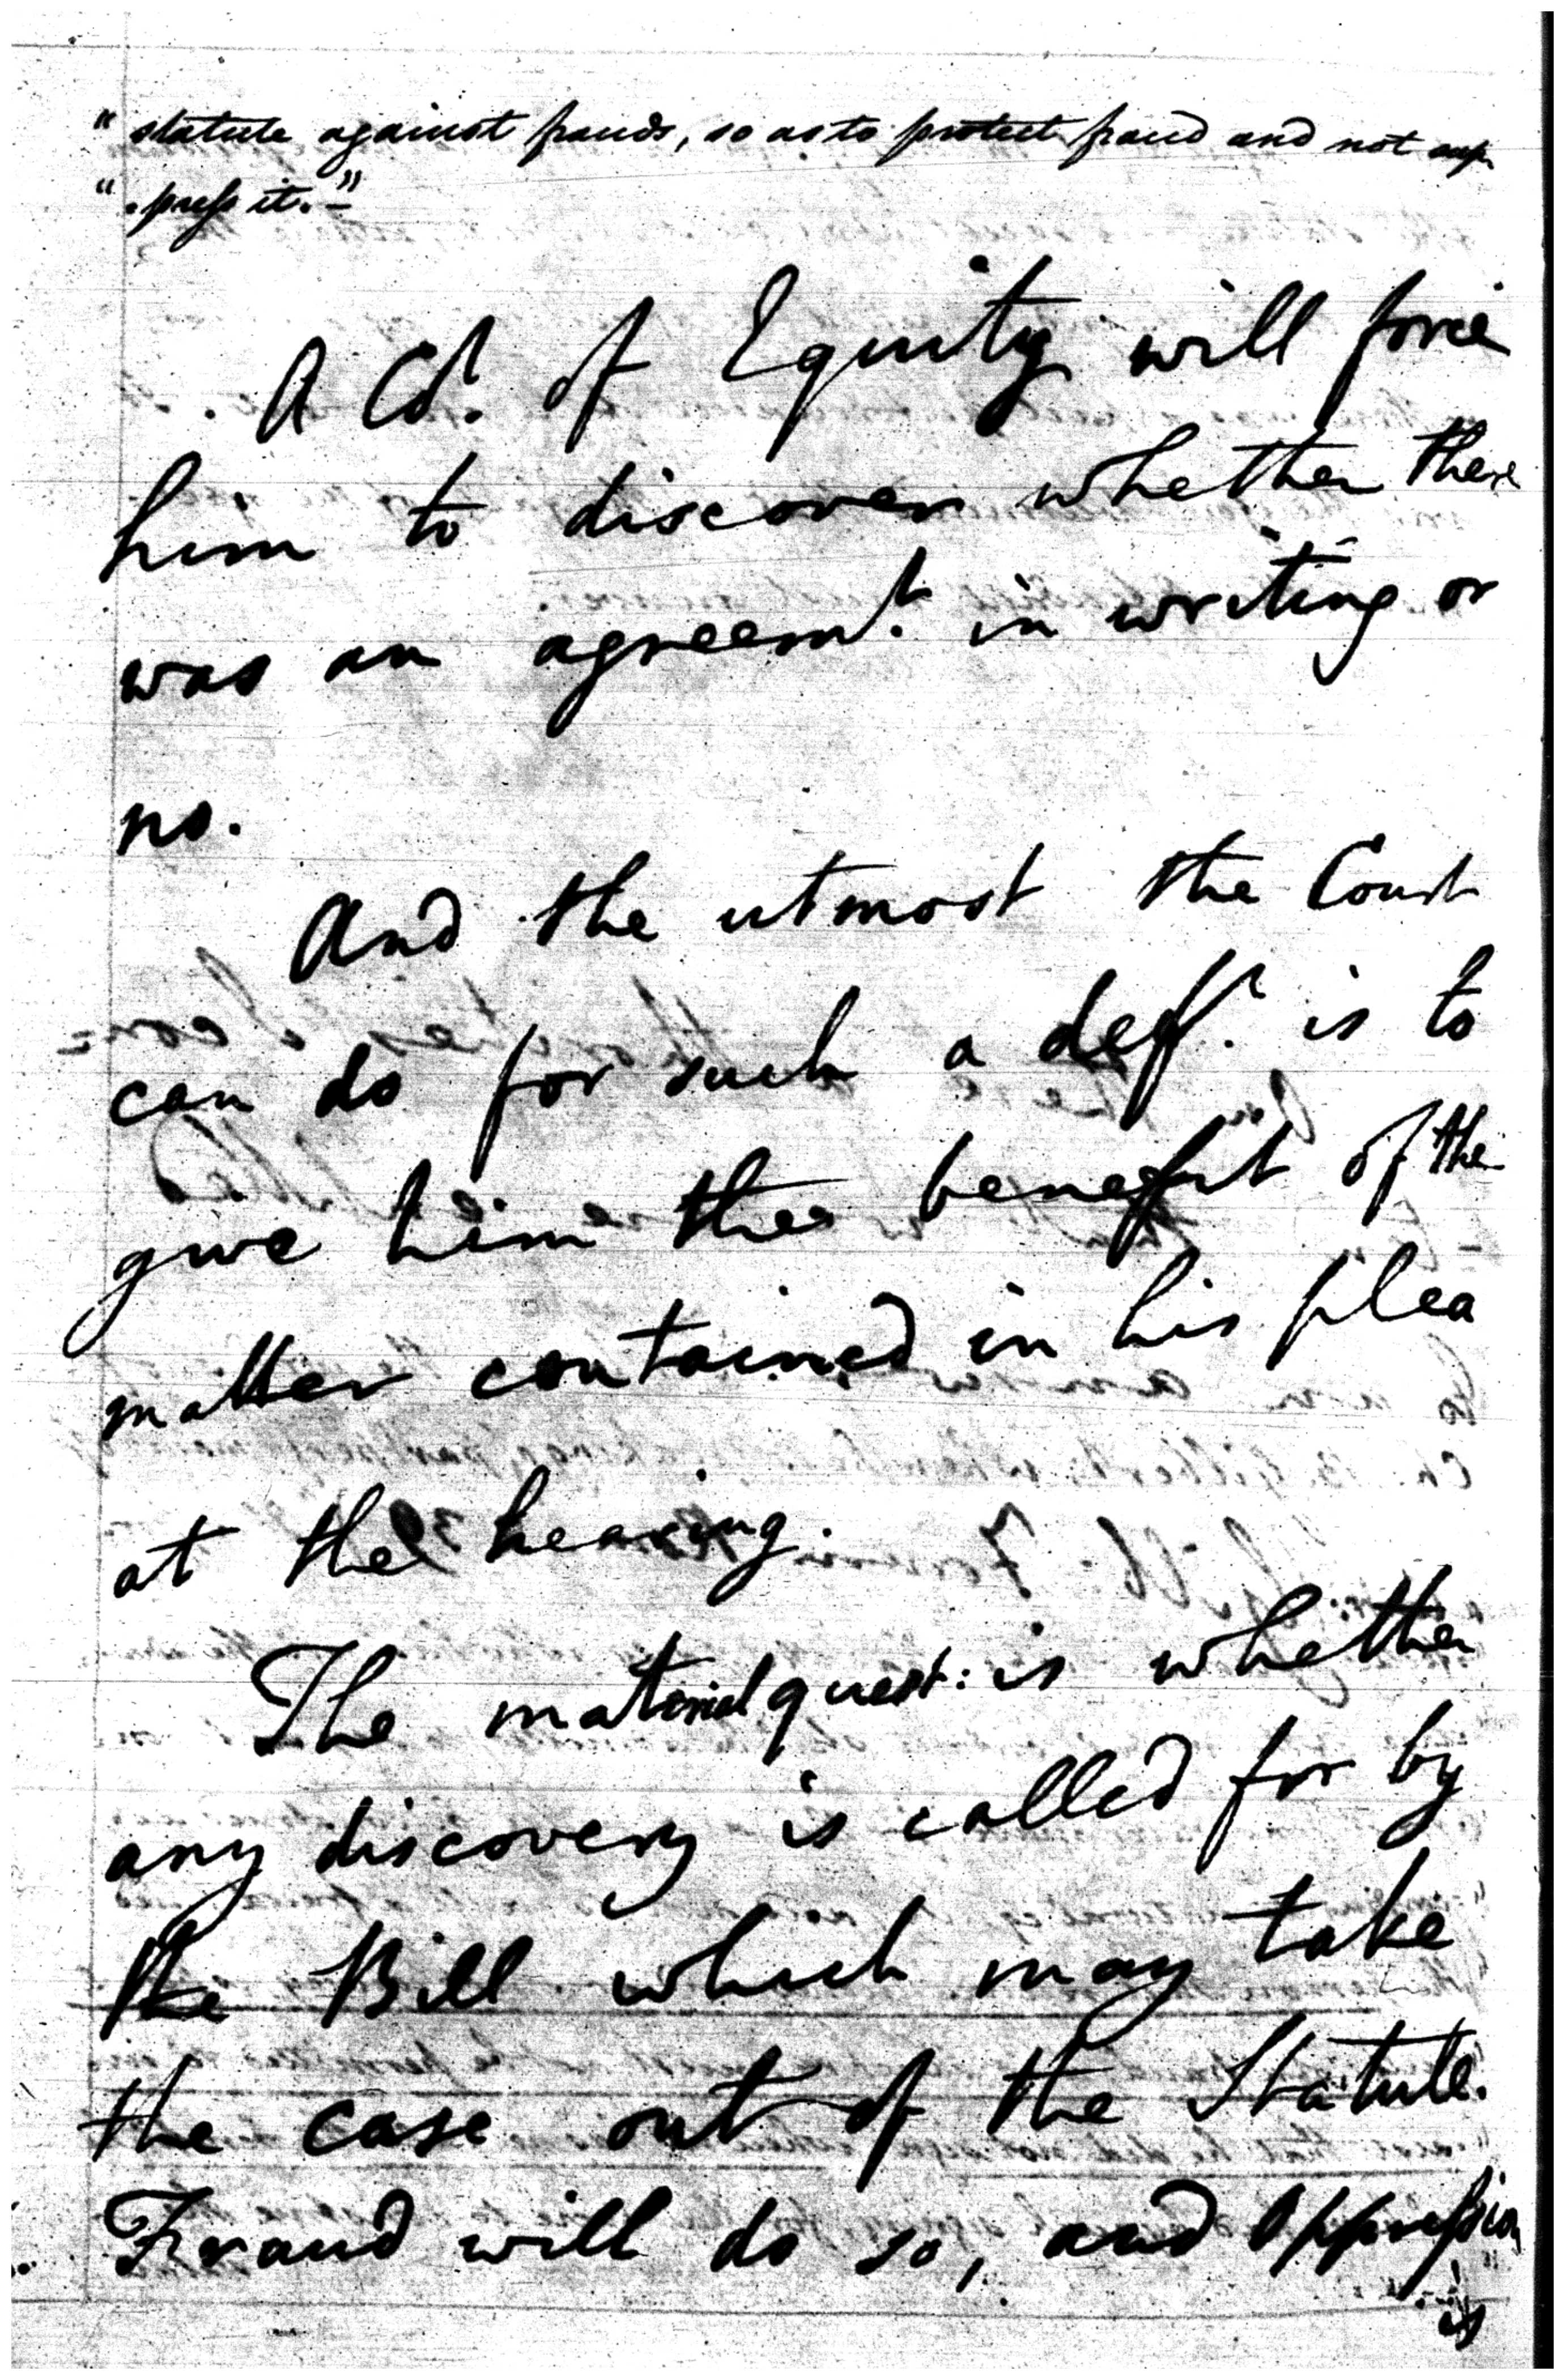 " statute against frauds, so as to protect fraud and not sup
" . press it." –
A Ct. of Equity will force
him to discover whether there
was an agreemt. in writing or
no.
And the utmost the Court
can do for such a deft. is to
give him the benefit of the
matter contained in his plea
at the hearing.
The material quest: is whether
any discovery is called for by
the Bill which may take
the case out of the Statute.
Fraud will do so, and Oppression
is